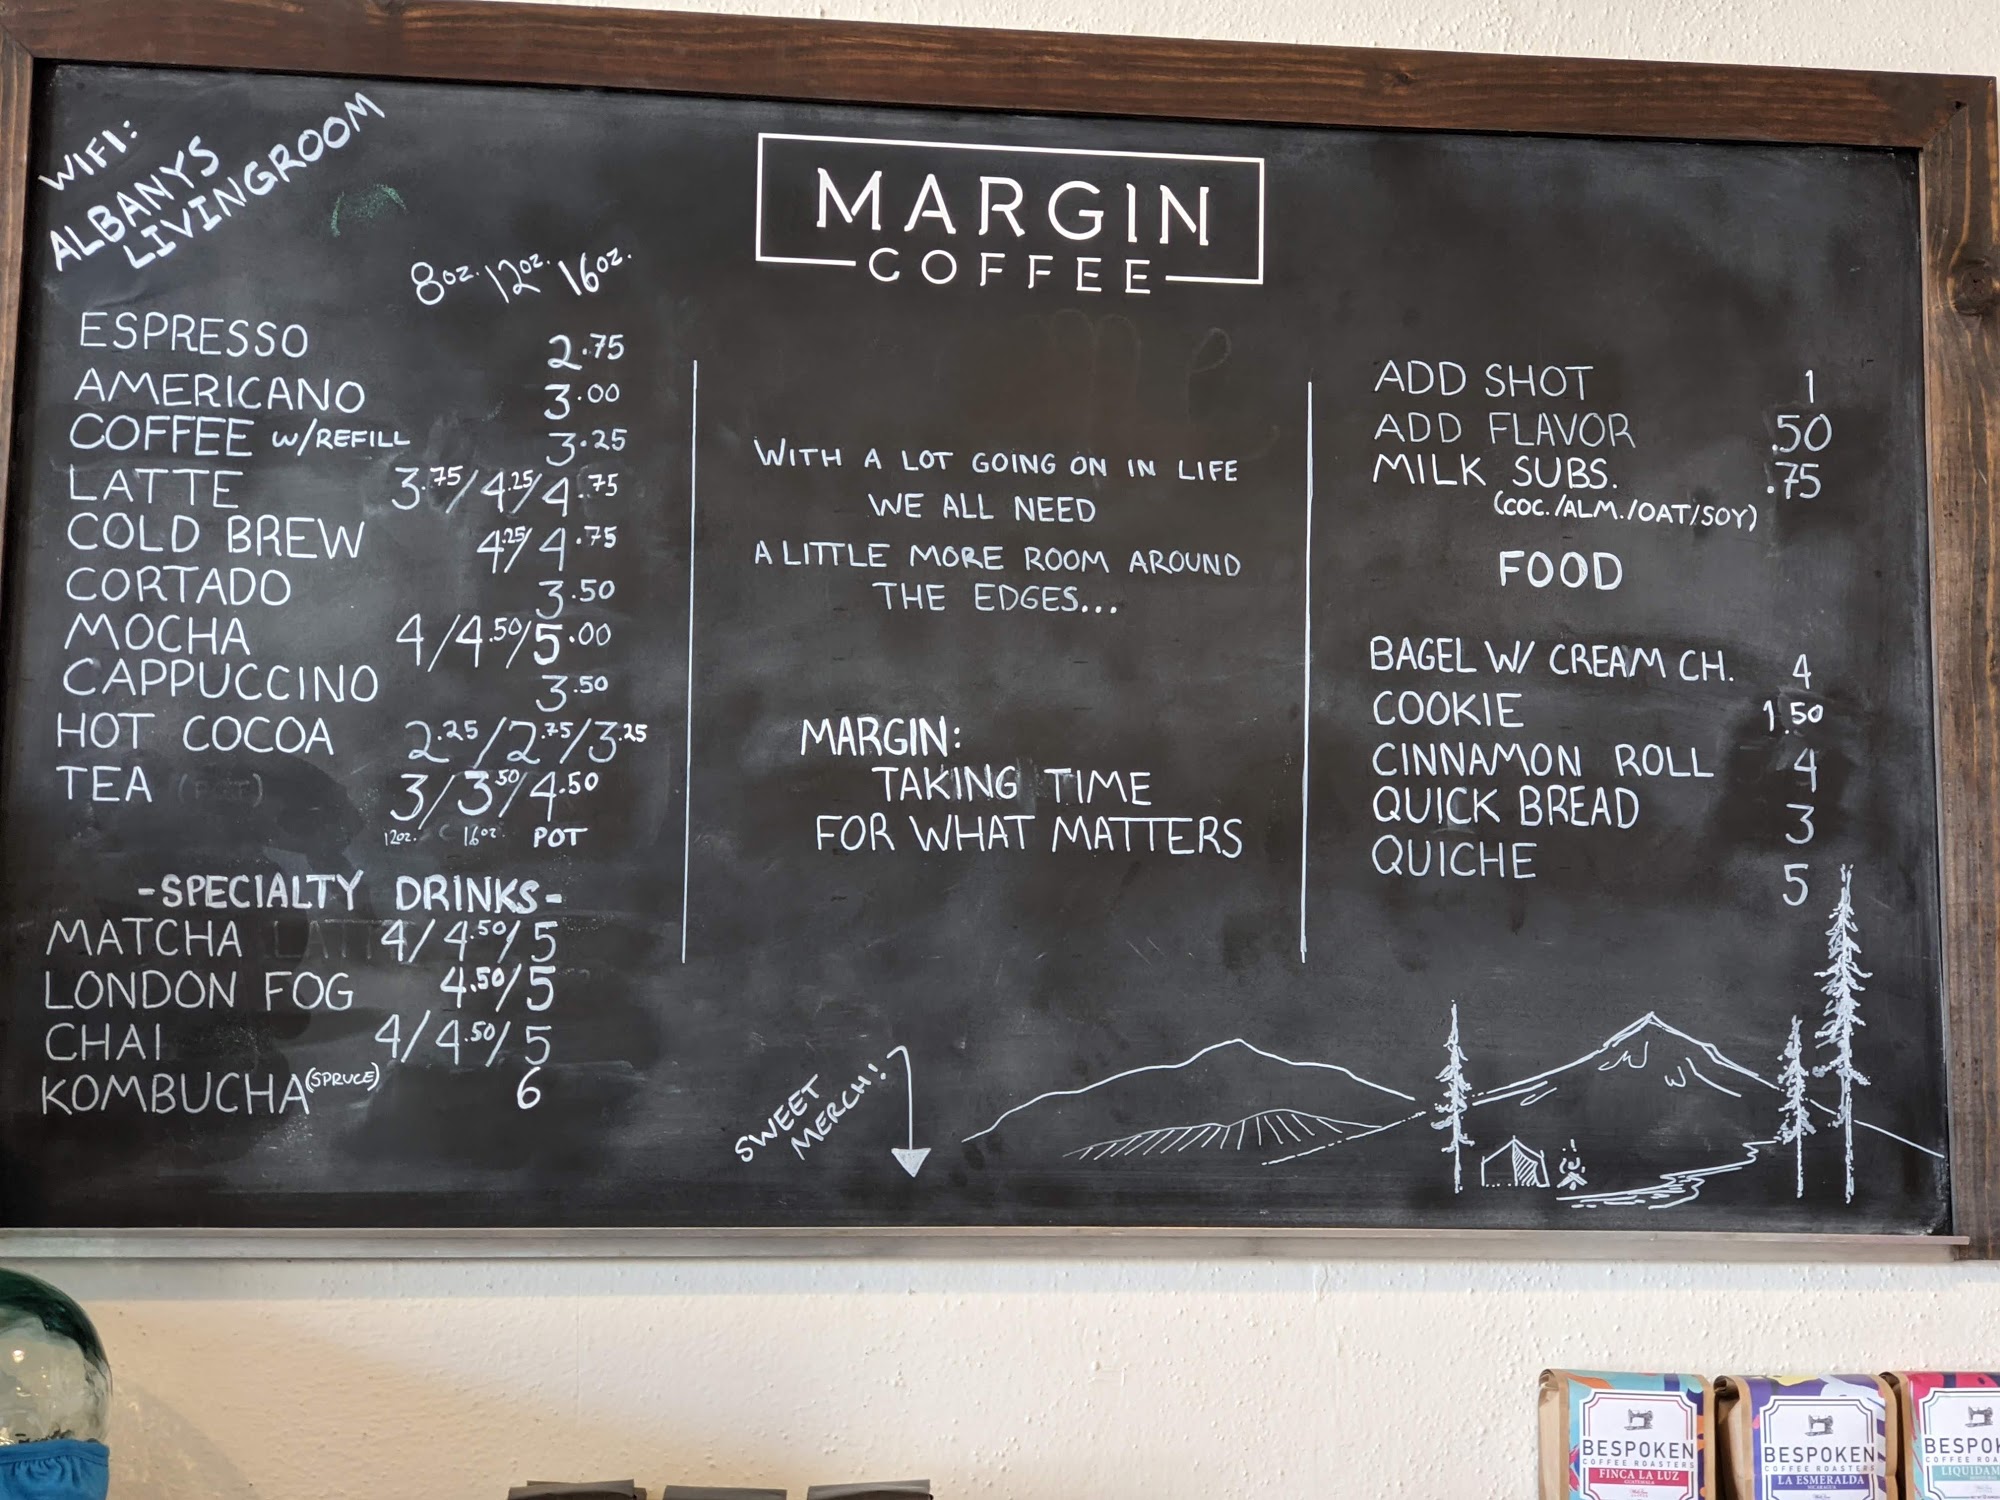 WIFI:
ALBANYS
LIVINGROOM
8oz. 12oz. 16oz.
ESPRESSO 2.75
AMERICANO 3.00
COFFEE W/REFILL 3.25
LATTE 3.75/4.25/4.75
COLD BREW 4.25/4.75
CORTADO 3.50
MOCHA 4/4.50/5.00
CAPPUCCINO 3.50
HOT COCOA 2.25/2.75/3.25
TEA 3/3.50/4.50
12oz. 16oz. POT
-SPECIALTY DRINKS-
MATCHA 4/4.50/5
LONDON FOG 4.50/5
CHAI 4/4.50/5
KOMBUCHA (SPRUCE) 6
MARGIN
COFFEE
WITH A LOT GOING ON IN LIFE
WE ALL NEED
A LITTLE MORE ROOM AROUND
THE EDGES...
MARGIN:
TAKING TIME
FOR WHAT MATTERS
SWEET
MERCH!
ADD SHOT 1
ADD FLAVOR .50
MILK SUBS. .75
(COC./ALM./OAT/SOY)
FOOD
BAGEL W/ CREAM CH. 4
COOKIE 1.50
CINNAMON ROLL 4
QUICK BREAD 3
QUICHE 5
BESPOKEN
COFFEE ROASTERS
FINCA LA LUZ
GUATEMALA
BESPOKEN
COFFEE ROASTERS
LA ESMERALDA
NICARAGUA
BESPO
COFFEE ROA
LIQUIDAM